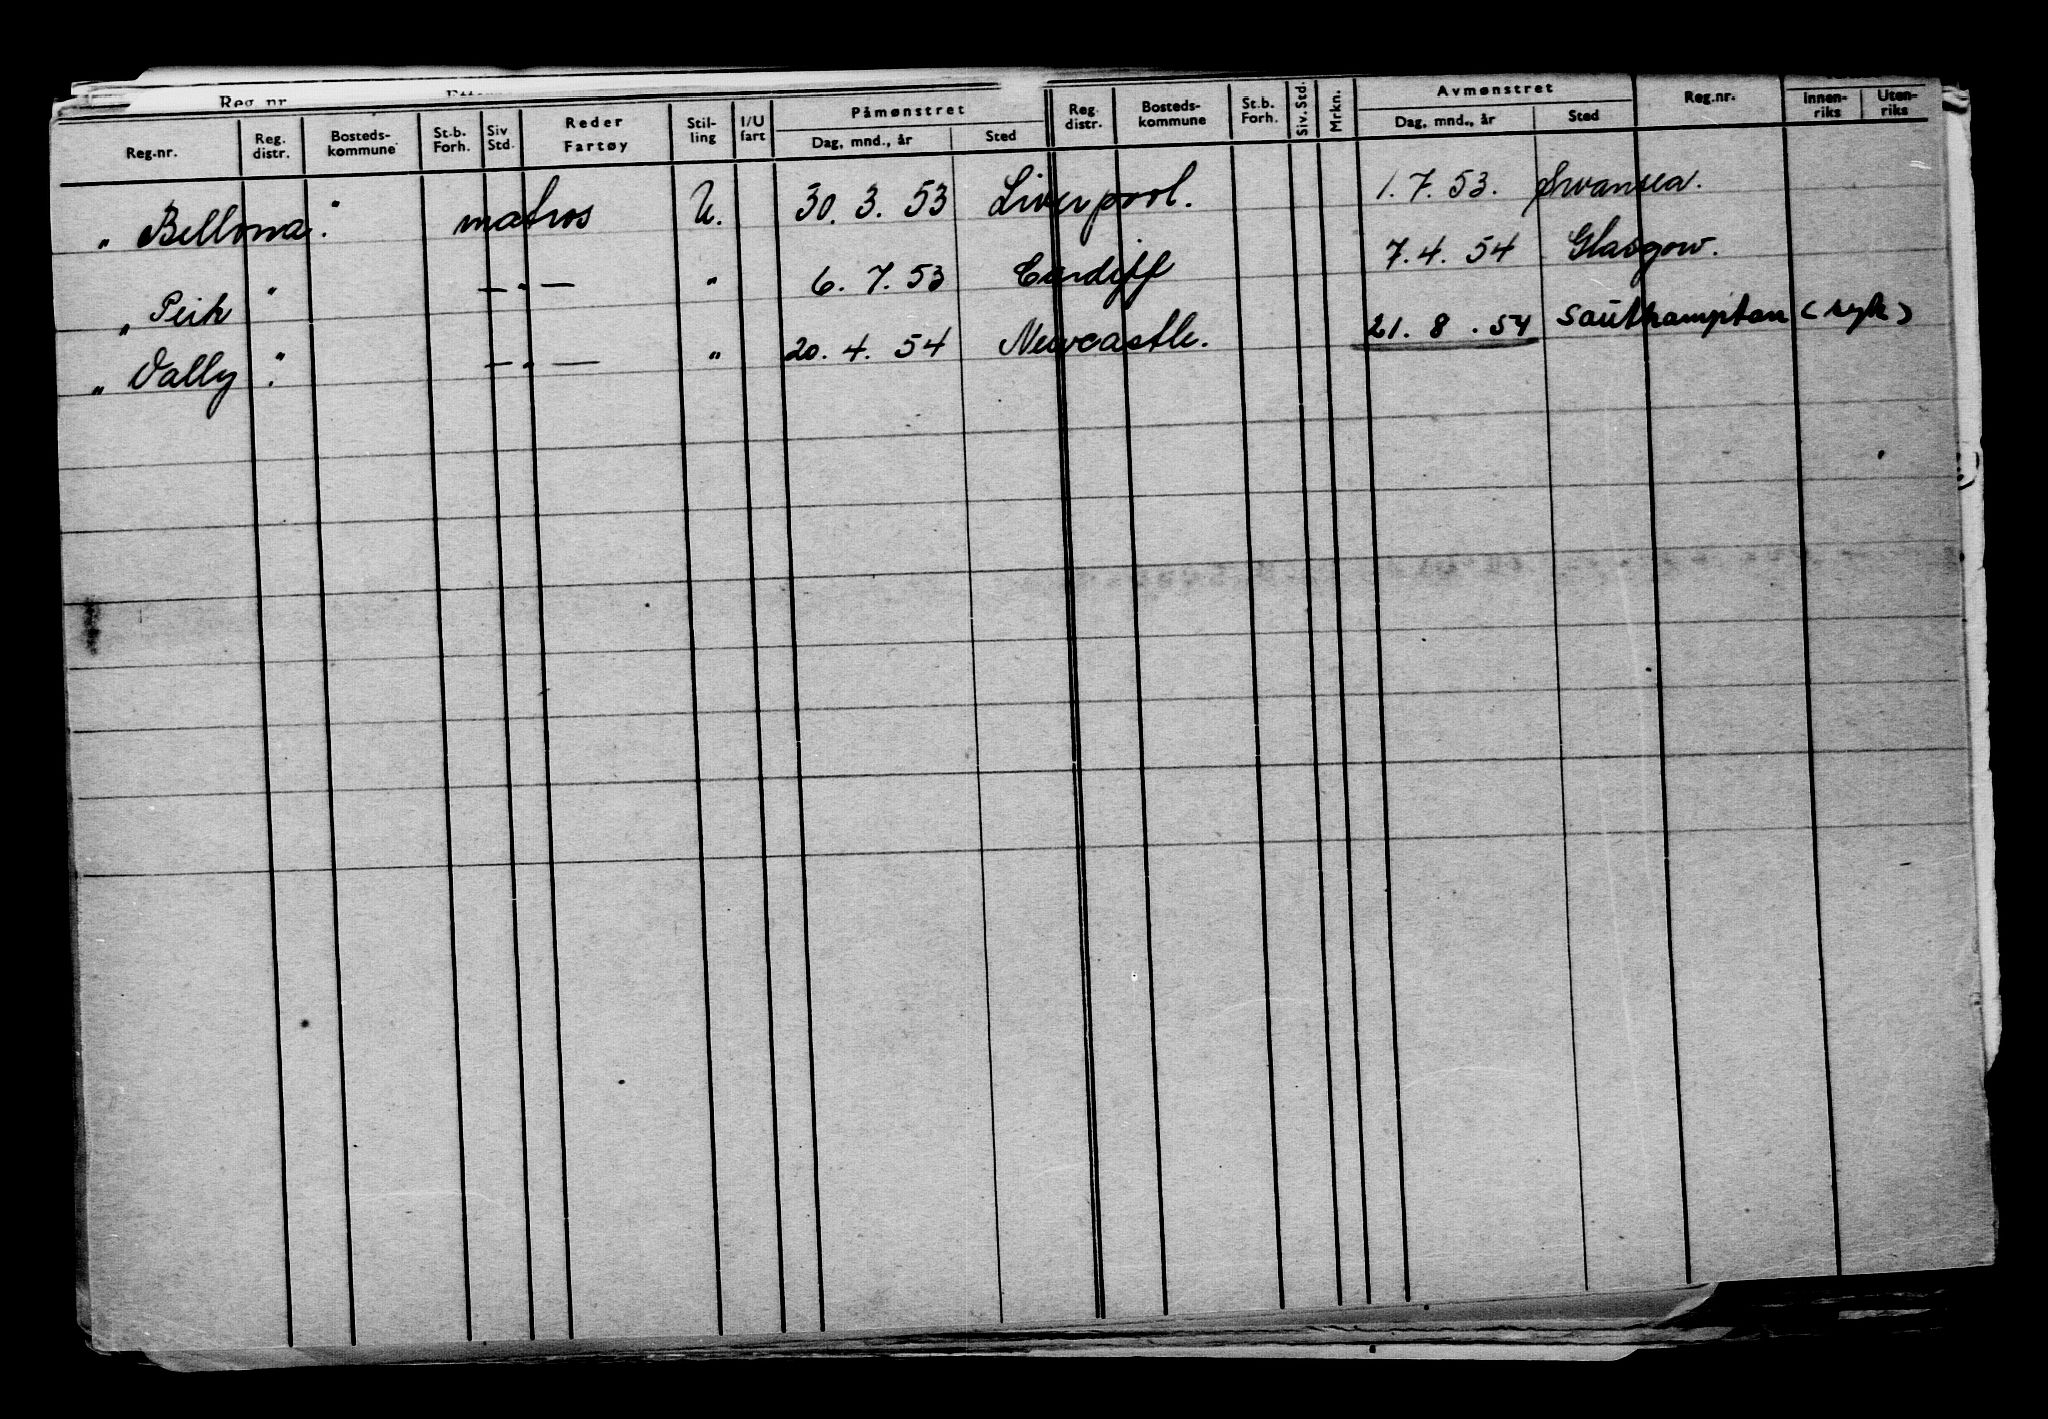 Reg. nr.
Reg.nr. Reg. distr. Bosteds-kommune St.b. Forh. Siv Std. Reder Fartøy Stil-ling I/U fart Påmønstret Dag, mnd., år Sted Reg. distr. Bosteds-kommune St.b. Forh. Siv. Std. Mrkn. Avmønstret Dag, mnd., år Sted Reg.nr. Innen-riks Uten-riks
" Bellona". matros U. 30. 3. 53 Liverpool. 1. 7. 53. Swansea.
" Peik " — " — " 6. 7. 53 Cardiff 7. 4. 54 Glasgow.
" Vally ". — " — " 20. 4. 54 Newcastle. 21. 8. 54 Southampton (syk)